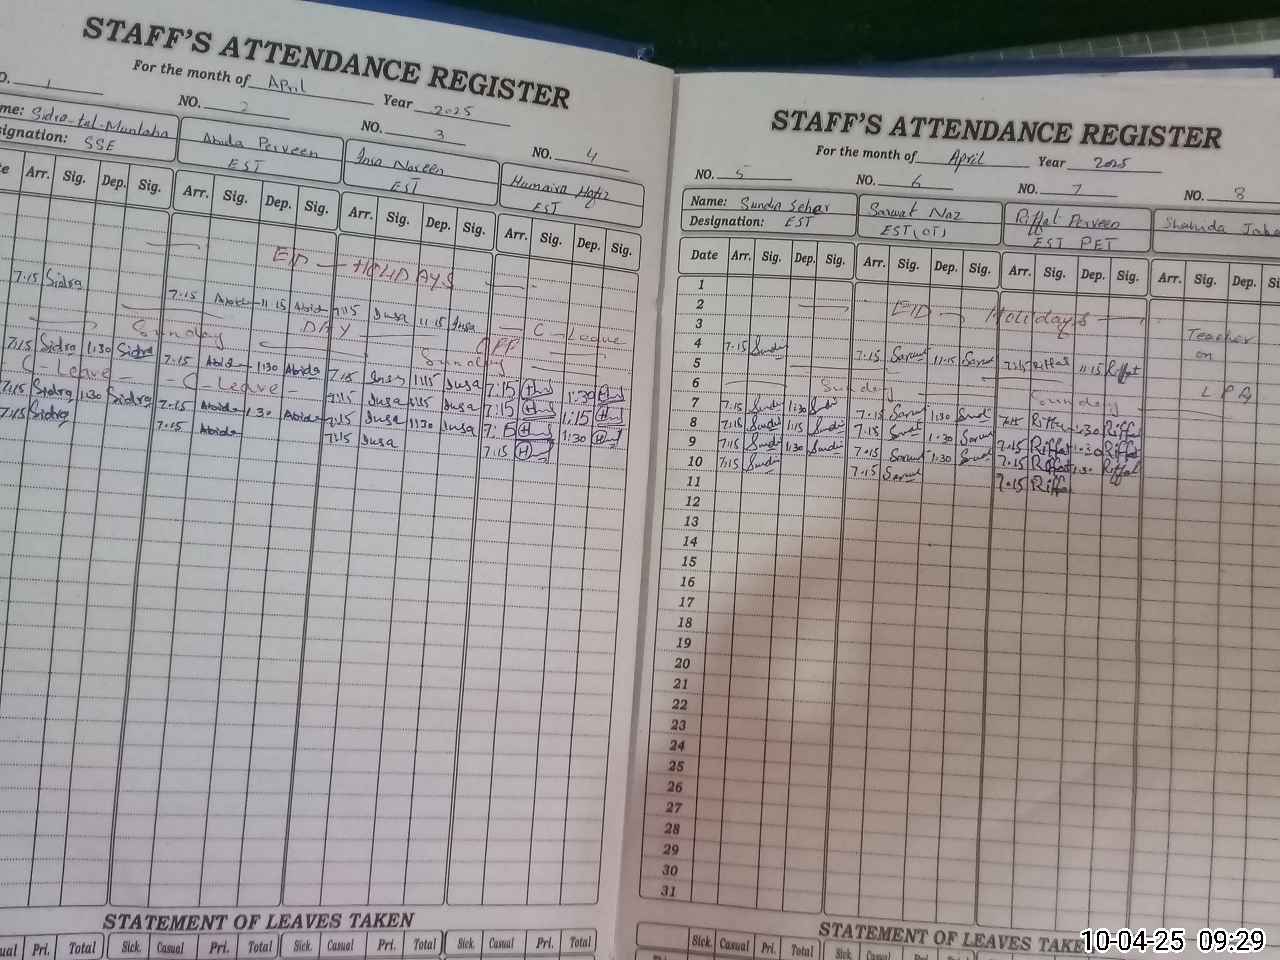 STAFF'S ATTENDANCE REGISTER
For the month of April Year 2025
NO. 1 NO. 2 NO. 3 NO. 4
me: Sidra-tul-Muntaha Abida Perveen Nareen Humaira Hafiz
signation: SSE EST EST EST
te Arr. Sig. Dep. Sig. Arr. Sig. Dep. Sig. Arr. Sig. Dep. Sig. Arr. Sig. Dep. Sig.
EID HOLIDAYS
7:15 Sidra 7:15 Abida 11:15 Abida 7:15 Insa 11:15 Insa C-Leave
Sunday DAY OFF Sunday
7:15 Sidra 1:30 Sidra 7:15 Abida 1:30 Abida 7:15 Insa 1:15 Insa 7:15 1:30
C-Leave C-Leave 7:15 Insa Insa 7:15 1:15
7:15 Sidra 1:30 Sidra 7:15 Abida 1:30 Abida 7:15 Insa 1:30 Insa 7:15 1:30
7:15 Sidra 7:15 Abida 7:15 Insa 7:15
STATEMENT OF LEAVES TAKEN
ual Pri. Total Sick. Casual Pri. Total Sick. Casual Pri. Total Sick. Casual Pri. Total
STAFF'S ATTENDANCE REGISTER
For the month of April Year 2025
NO. 5 NO. 6 NO. 7 NO. 8
Name: Sehar Sarwat Naz Riffat Perveen Shahida
Designation: EST EST (OT) EST PET
Date Arr. Sig. Dep. Sig. Arr. Sig. Dep. Sig. Arr. Sig. Dep. Sig. Arr. Sig. Dep. Si
1
2 EID Holidays
3 Teacher
4 7:15 7:15 Sarwat 11:15 Sarwat 7:15 Riffat 11:15 Riffat on
5
6 Sunday Sunday LPR
7 7:15 1:30 7:15 Sarwat 1:30 Sarwat 7:15 Riffat 1:30 Riffat
8 7:15 1:15 7:15 Sarwat 1:30 Sarwat 7:15 Riffat 1:30 Riffat
9 7:15 1:30 7:15 Sarwat 1:30 Sarwat 7:15 Riffat 1:30 Riffat
10 7:15 7:15 Sarwat 7:15 Riffat
11
12
13
14
15
16
17
18
19
20
21
22
23
24
25
26
27
28
29
30
31
STATEMENT OF LEAVES TAKE
Sick. Casual Pri. Total Sick. Casual Pri. Total
10-04-25 09:29